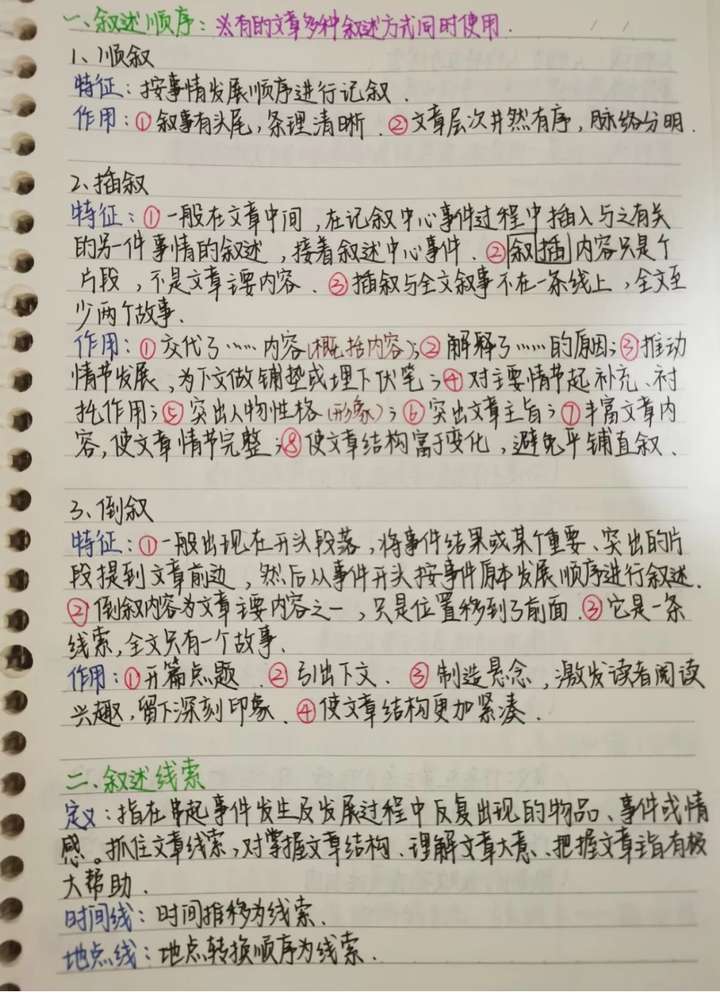 一、叙述顺序：※有的文章多种叙述方式同时使用.
1、顺叙
特征：按事情发展顺序进行记叙.
作用：①叙事有头尾，条理清晰.②文章层次井然有序，脉络分明.
2、插叙
特征：①一般在文章中间，在记叙中心事件过程中插入与之有关
的另一件事情的叙述，接着叙述中心事件.②叙插内容只是个
片段，不是文章主要内容.③插叙与全文叙事不在一条线上，全文至
少两个故事.
作用：①交代了……内容(概括内容)；②解释了……的原因；③推动
情节发展，为下文做铺垫或埋下伏笔；④对主要情节起补充、衬
托作用；⑤突出人物性格(形象)；⑥突出文章主旨；⑦丰富文章内
容，使文章情节完整；⑧使文章结构富于变化，避免平铺直叙.
3、倒叙
特征：①一般出现在开头段落，将事件结果或某个重要、突出的片
段提到文章前边，然后从事件开头按事件原本发展顺序进行叙述.
②倒叙内容为文章主要内容之一，只是位置移到了前面.③它是一条
线索，全文只有一个故事.
作用：①开篇点题.②引出下文.③制造悬念，激发读者阅读
兴趣，留下深刻印象.④使文章结构更加紧凑.
二、叙述线索
定义：指在串起事件发生及发展过程中反复出现的物品、事件或情
感。抓住文章线索，对掌握文章结构、理解文章大意、把握文章主旨有极
大帮助.
时间线：时间推移为线索.
地点线：地点转换顺序为线索.